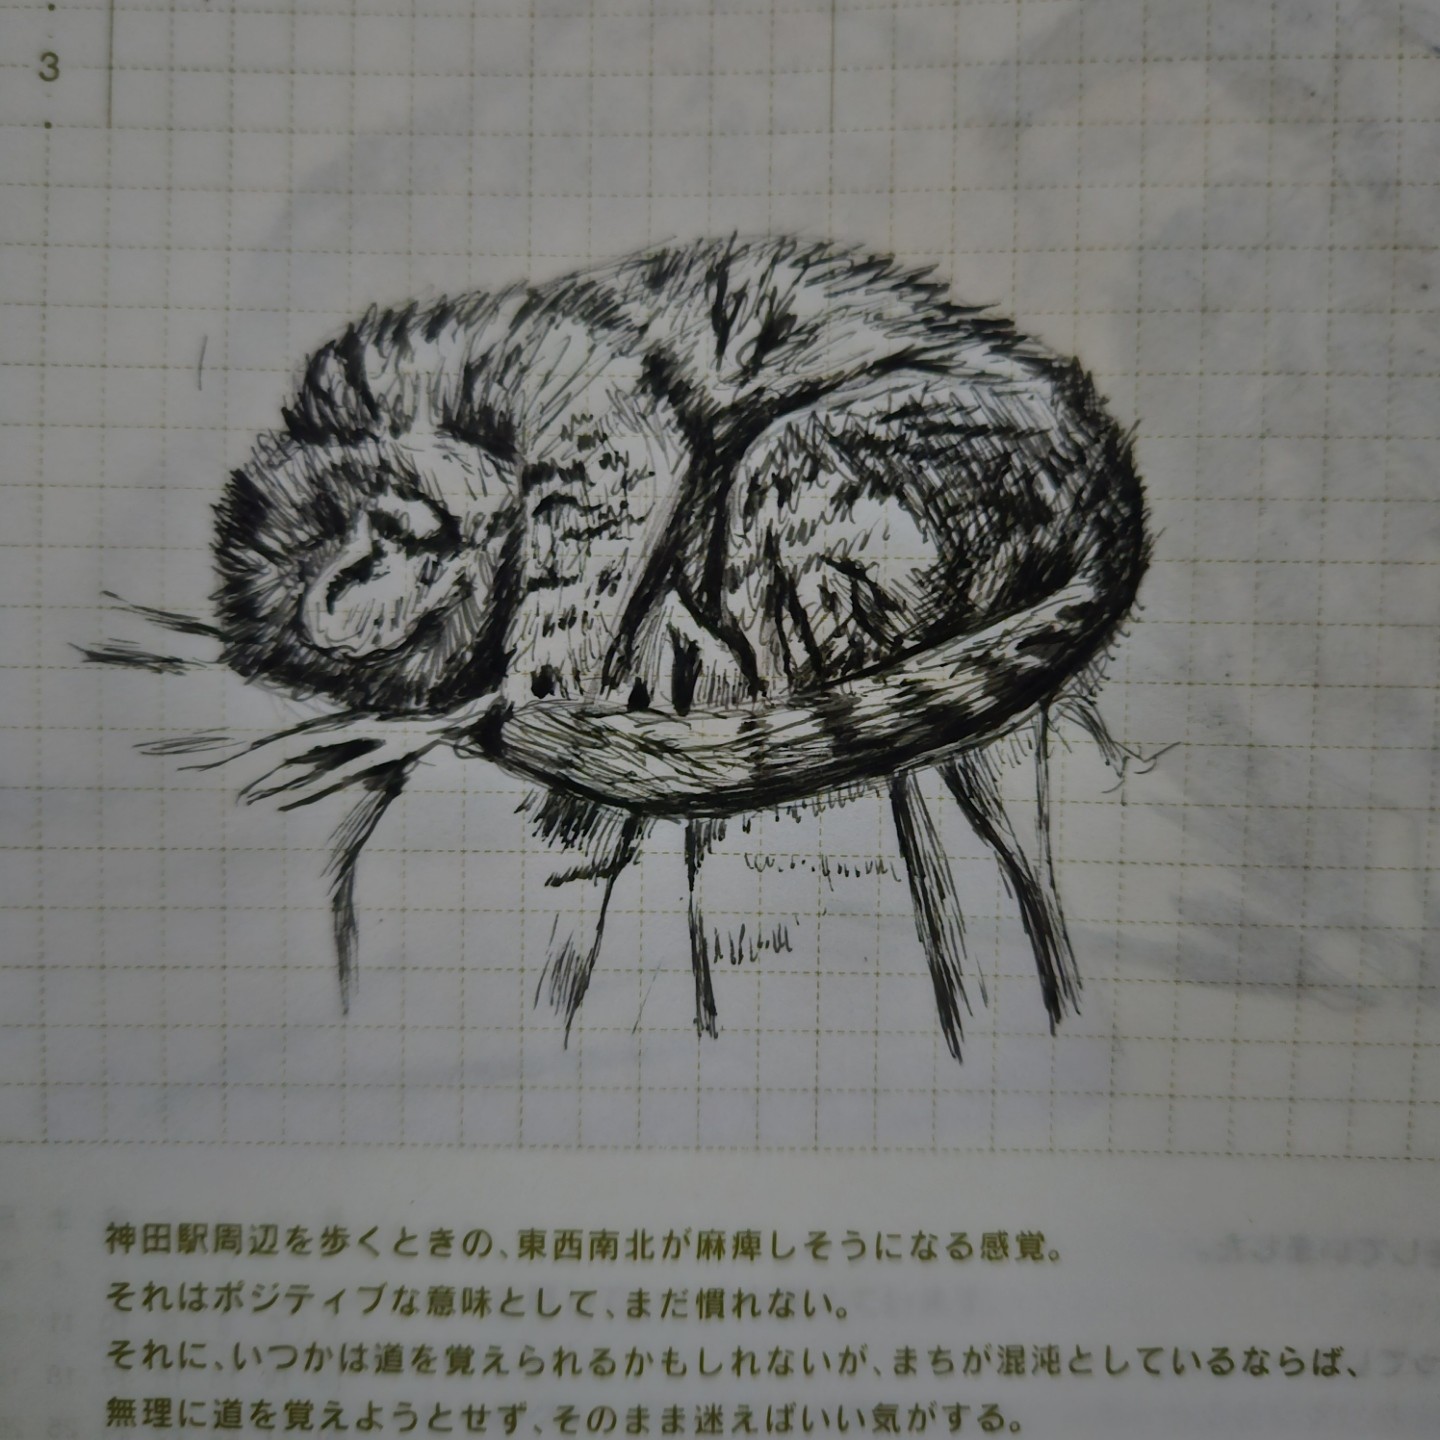 3
神田駅周辺を歩くときの、東西南北が麻痺しそうになる感覚。
それはポジティブな意味として、まだ慣れない。
それに、いつかは道を覚えられるかもしれないが、まちが混沌としているならば、
無理に道を覚えようとせず、そのまま迷えばいい気がする。